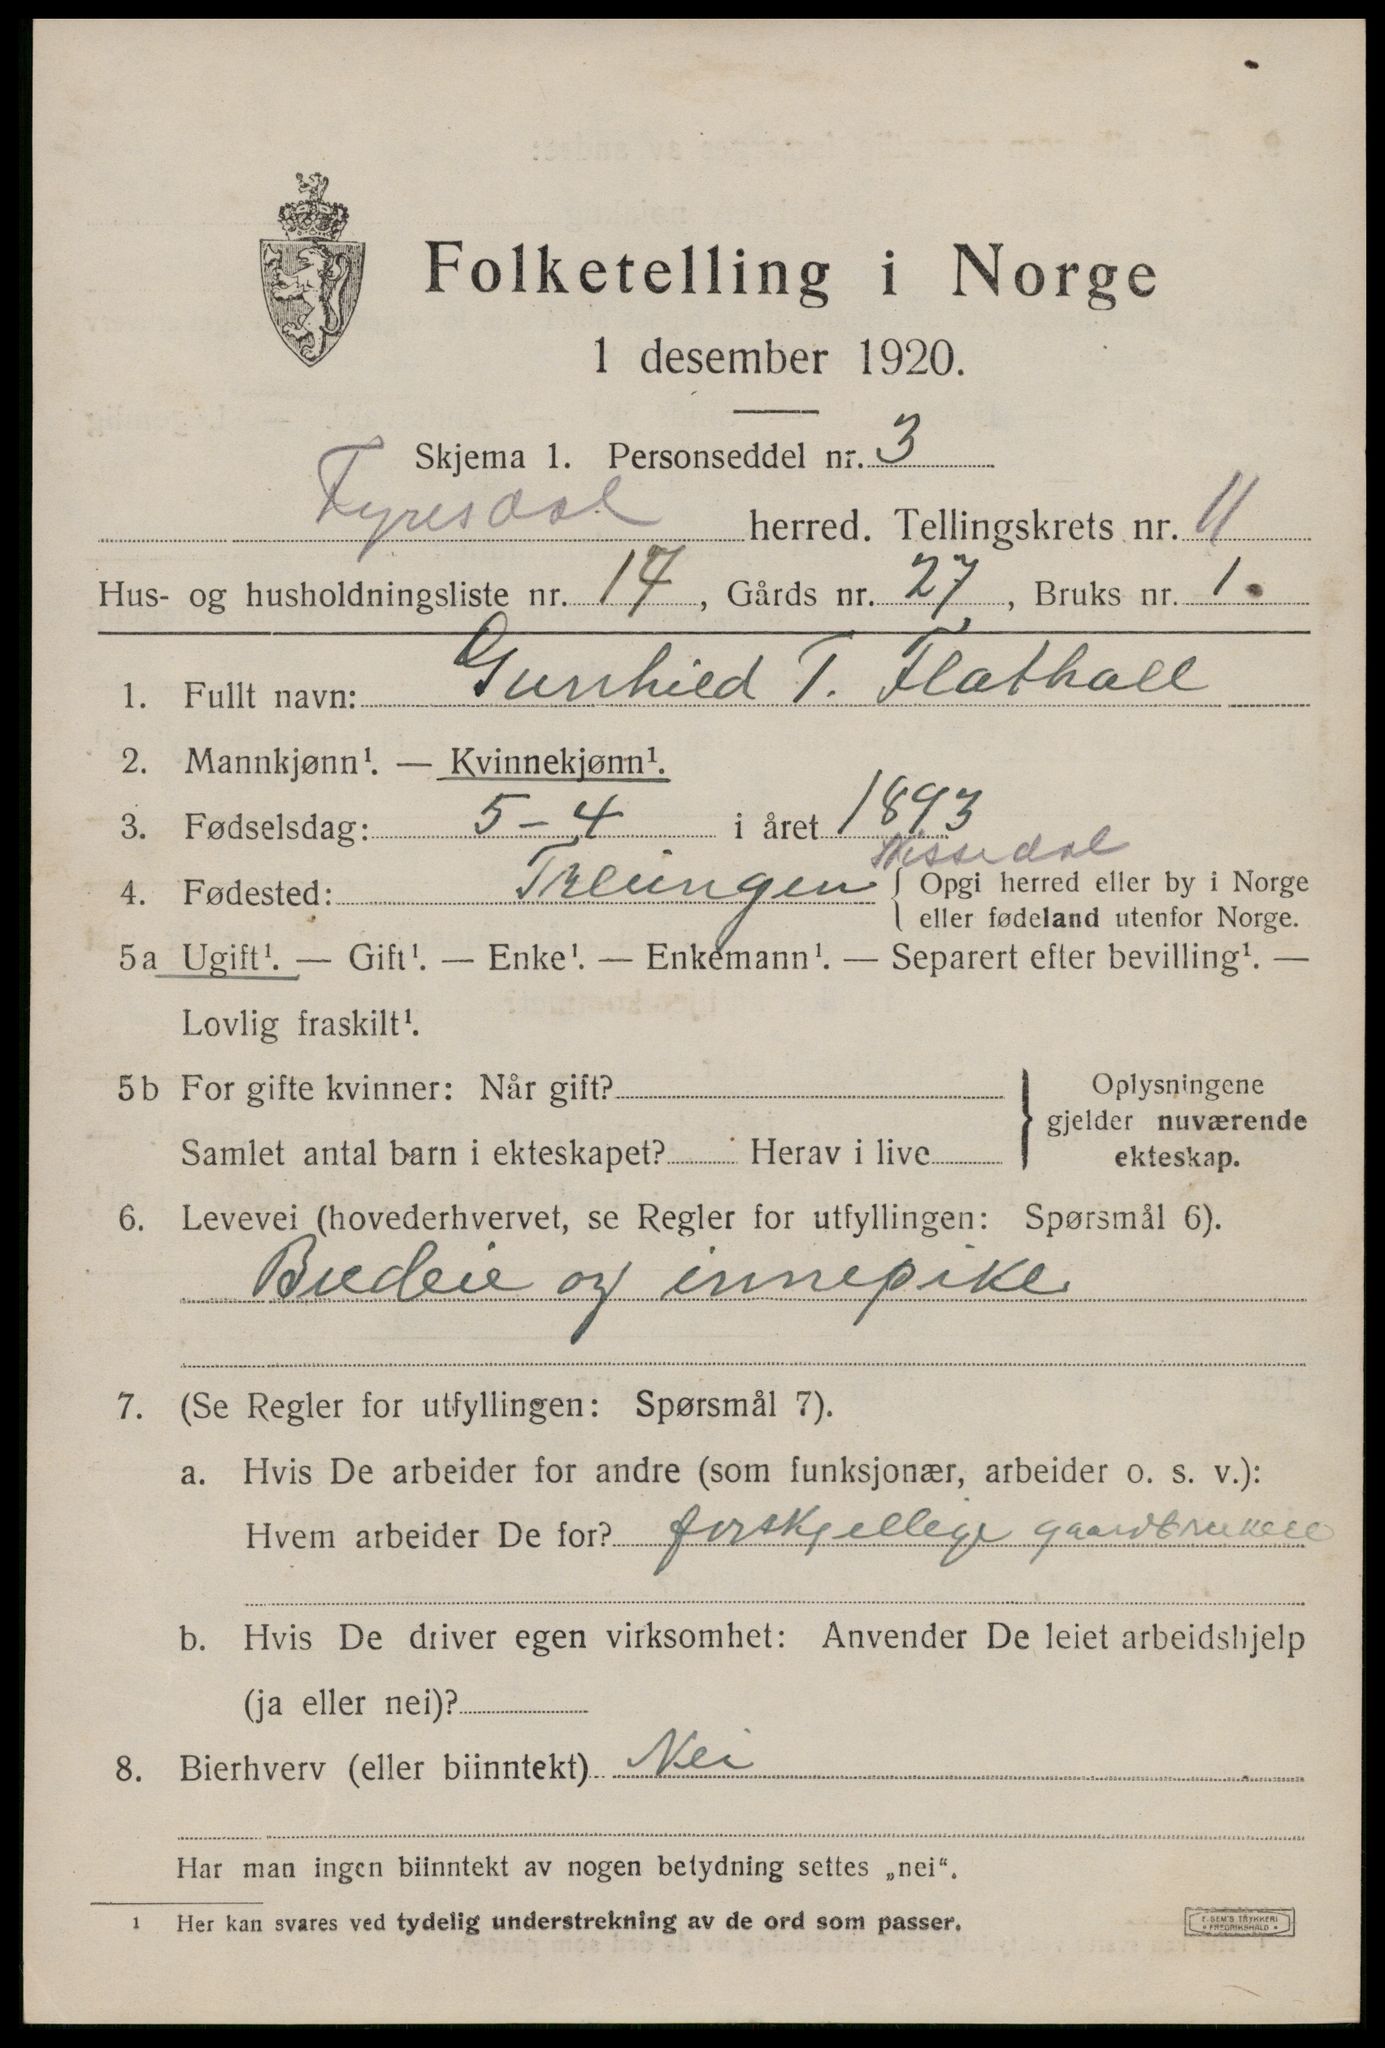 Folketelling i Norge
1 desember 1920.
Skjema 1. Personseddel nr. 3
Fyresdal herred. Tellingskrets nr. 11
Hus- og husholdningsliste nr. 17, Gårds nr. 27, Bruks nr. 1.
1. Fullt navn: Gunhild T. Flathall
2. Mannkjønn¹. — Kvinnekjønn¹.
3. Fødselsdag: 5-4 i året 1893
Nissedal
4. Fødested: Treungen { Opgi herred eller by i Norge
eller fødeland utenfor Norge.
5a Ugift¹. — Gift¹. — Enke¹. — Enkemann¹. — Separert efter bevilling¹. —
Lovlig fraskilt¹.
5b For gifte kvinner: Når gift?
Samlet antal barn i ekteskapet? Herav i live
} Oplysningene
gjelder nuværende
ekteskap.
6. Levevei (hovederhvervet, se Regler for utfyllingen: Spørsmål 6).
Budeie og innepike
7. (Se Regler for utfyllingen: Spørsmål 7).
a. Hvis De arbeider for andre (som funksjonær, arbeider o. s. v.):
Hvem arbeider De for? forskjellige gaardbrukere
b. Hvis De driver egen virksomhet: Anvender De leiet arbeidshjelp
(ja eller nei)?
8. Bierhverv (eller biinntekt) Nei
Har man ingen biinntekt av nogen betydning settes „nei“.
¹ Her kan svares ved tydelig understrekning av de ord som passer.
E. SEM'S TRYKKERI
* FREDRIKSHALD *